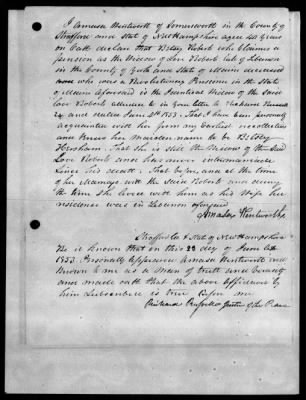 I Amasa Wentworth of Somersworth in the County of
Strafford and State of New Hampshire aged 48 years
on Oath declare that Betsey Roberts who claims a
pension as the Widow of Love Roberts late of Lebanon
in the County of York and State of Maine deceased
who was a Revolutionary Pensioner in the State
of Maine aforesaid is the Identical Widow of the said
Love Roberts alluded to in your letter to
and dated June 2d 1853. That I have been personally
acquainted with her from my Earliest recollection
and knew her Maiden name to be Betsey
Hersham. That she is still the Widow of the said
Love Roberts and has never intermarried
since his death. That before, and at the time
of her Marriage with the said Roberts and during
the time she lived with him as his Wife her
residence was in Lebanon aforesaid
Amasa Wentworth
Strafford SS State of New Hampshire
Be it known that on this 22 day of June AD
1853. Personally appeared Amasa Wentworth well
known to me as a man of truth and veracity
and made oath that the above affidavit by
him subscribed is true before me
Justice of the Peace